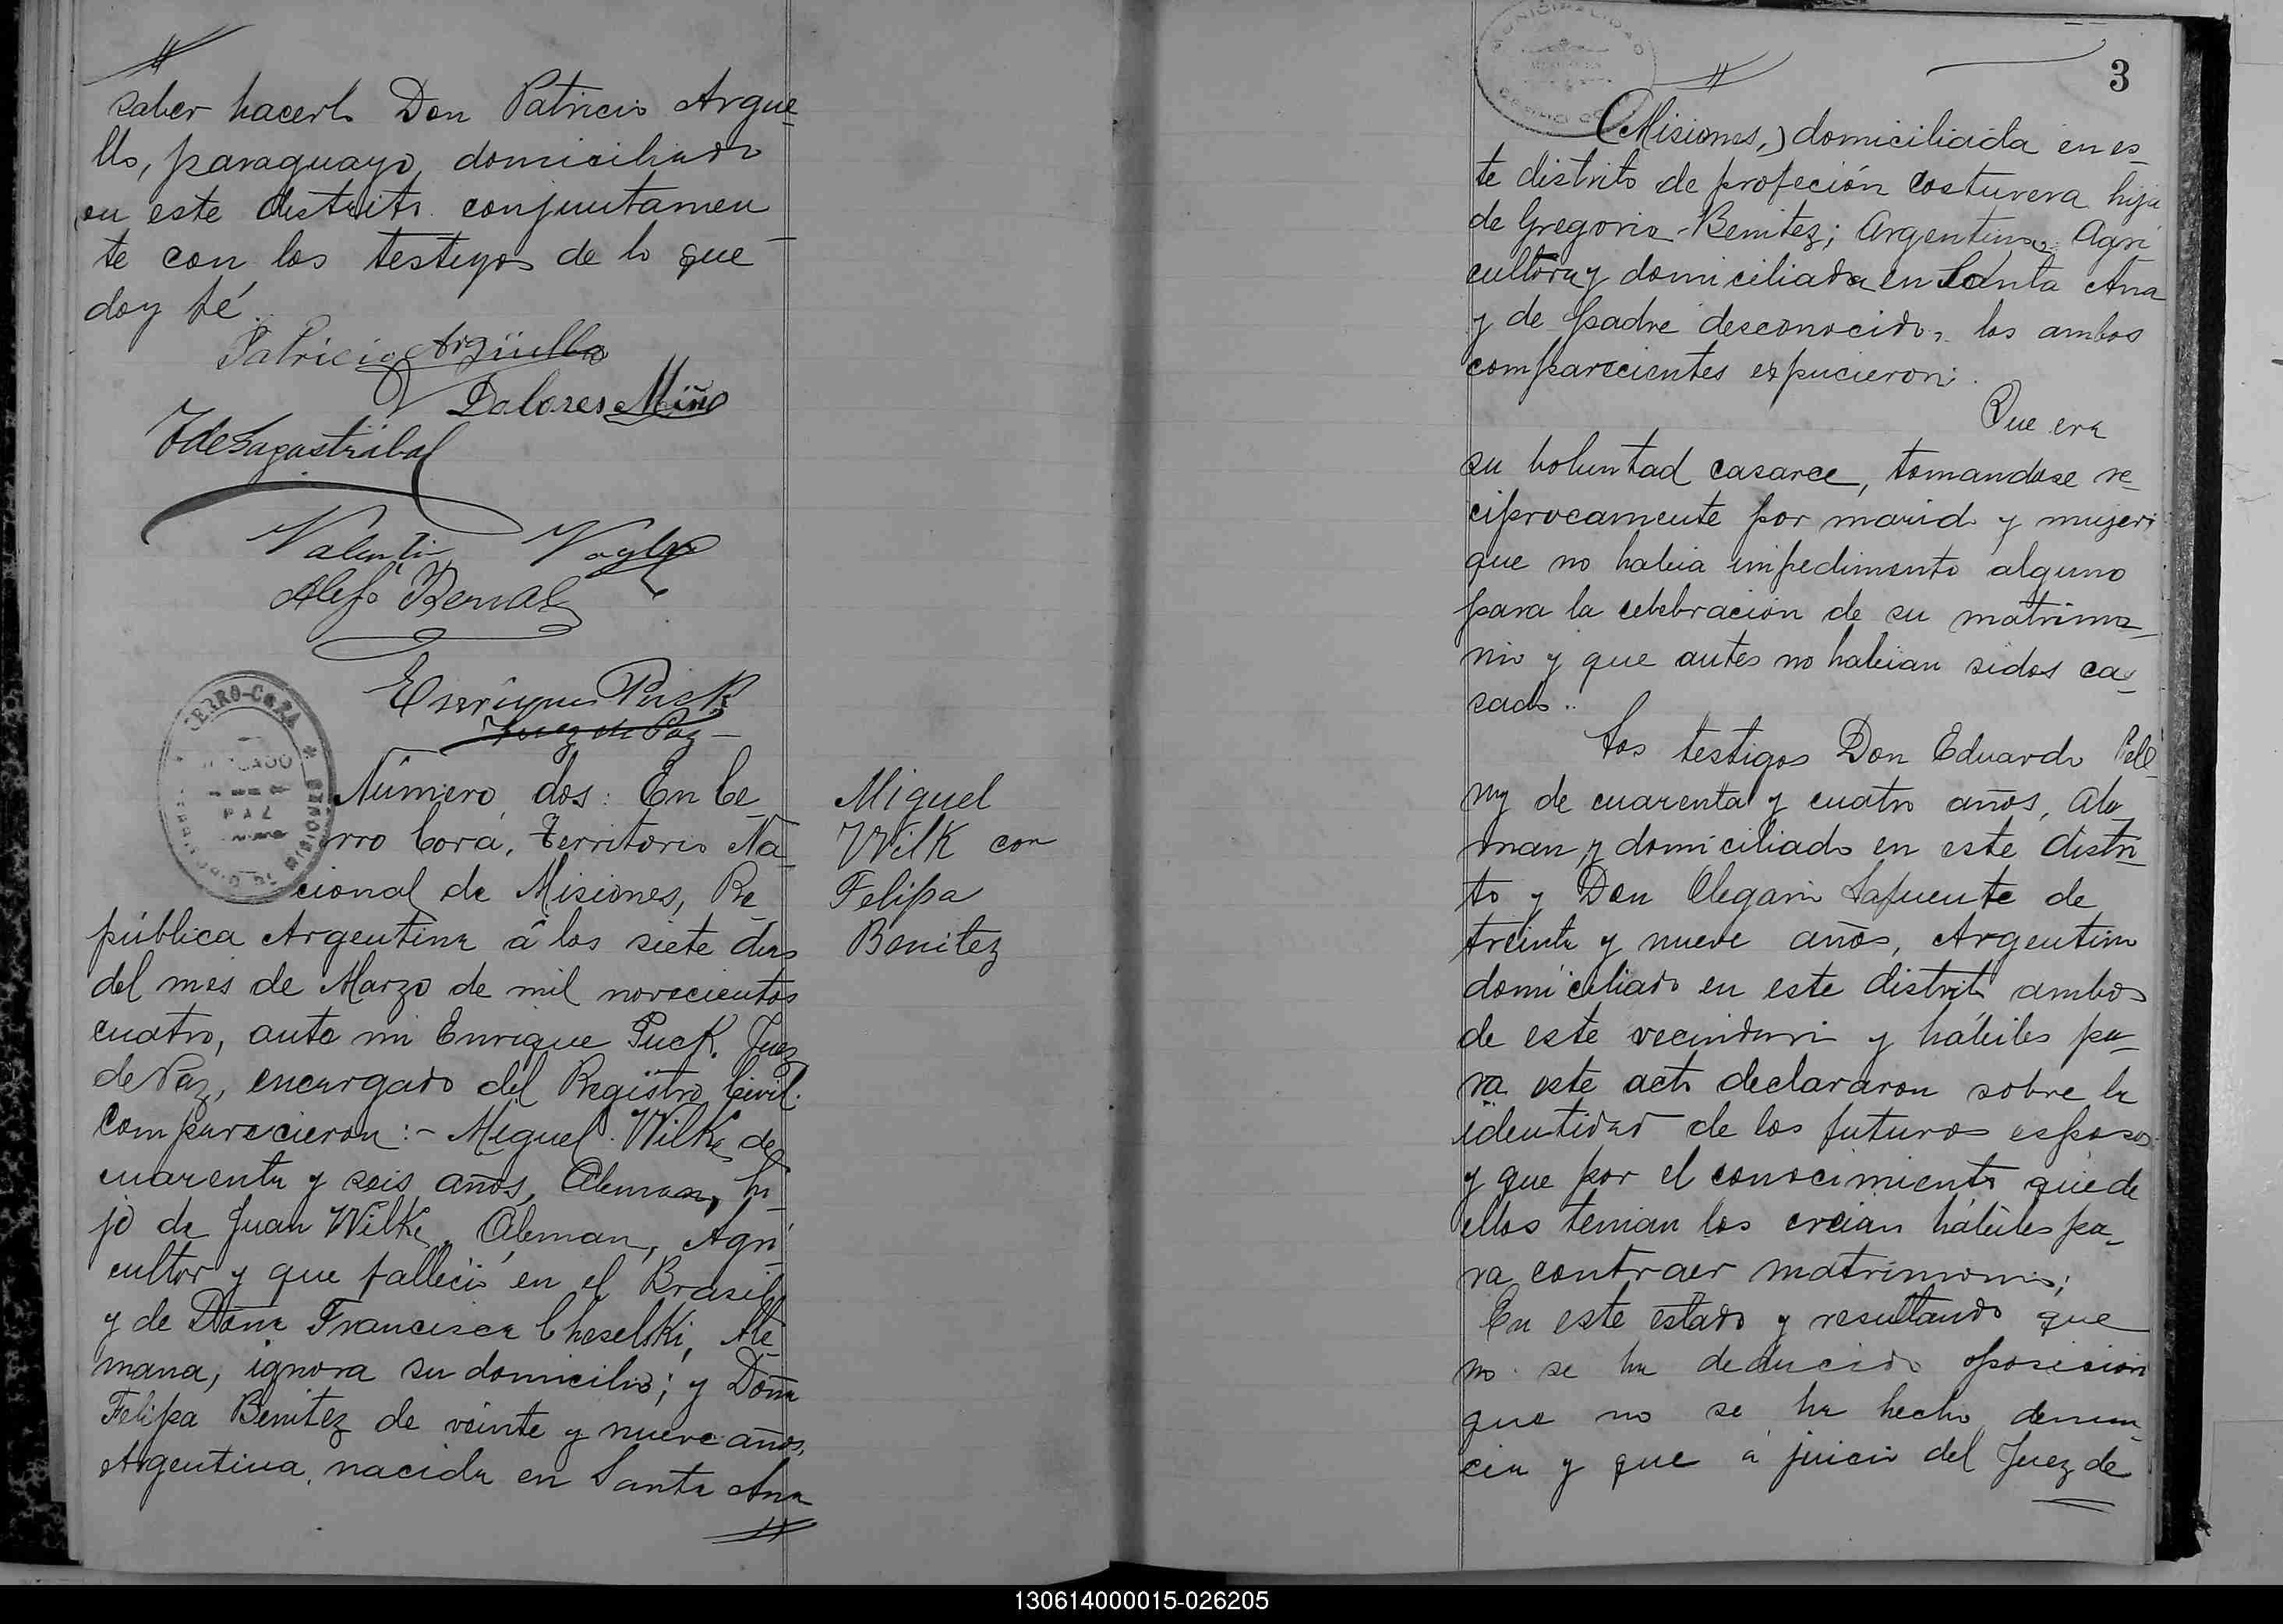 saber hacerlo Don Patricio Argue-
llo, paraguayo, domiciliado
en este distrito conjuntamen-
te con los testigos de lo que
doy fé.
Patricio Argüello
Dolores Miño
J de Lagastrabal
Valentin Vogler
Alejo Bernal
Enrique Puck
Juez de Paz
CERRO-CORÁ
JUZGADO
PAZ
MISIONES
Número dos: En Ce-
rro Corá, Territorio Na-
cional de Misiones, Re-
pública Argentina á los siete dias
del mes de Marzo de mil novecientos
cuatro, ante mi Enrique Puck, Juez
de Paz, encargado del Registro Civil.
Comparecieron:- Miguel Wilke de
cuarenta y seis años, Aleman, hi-
jo de Juan Wilke, Aleman, Agri-
cultor y que falleció en el Brasil
y de Doña Francisca Cheselski, Ale-
mana, ignora su domicilio; y Doña
Felipa Benitez de veinte y nueve años,
Argentina, nacida en Santa Ana
Miguel
Wilk con
Felipa
Benitez
MUNICIPALIDAD
3
(Misiones,) domiciliada en es-
te distrito de profeción Costurera hija
de Gregoria Benitez; Argentina, Agri
cultora y domiciliada en Santa Ana
y de padre desconocido, los ambos
comparecientes expucieron:
Que era
su voluntad casarce, tomandose re-
ciprocamente por marido y mujer;
que no habia impedimento alguno
para la celebración de su matrimo-
nio y que antes no habian sidos ca-
sado.
Los testigos Don Eduardo
de cuarenta y cuatro años, Ale-
man, y domiciliado en este distri-
to y Don Olegario Lafuente de
treinta y nueve años, Argentino
domiciliado en este distrito ambos
de este vecindario y hábiles pa-
ra este acto declararon sobre la
identidad de los futuros esposos
y que por el conocimiento que de
ellos tenian los creian hábiles pa-
ra contraer matrimonio;
En este estado y resultando que
no se ha deducido oposicion
que no se ha hecho denun-
cia y que á juicio del Juez de
130614000015-026205